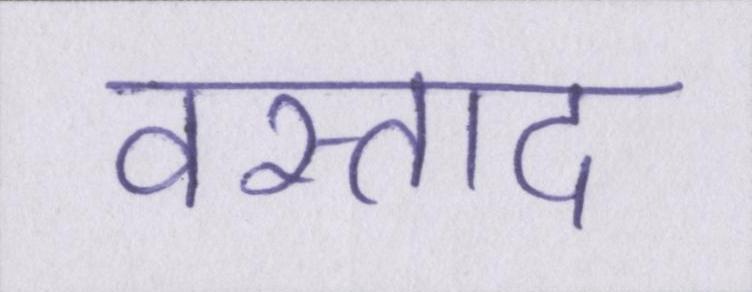 वस्ताद